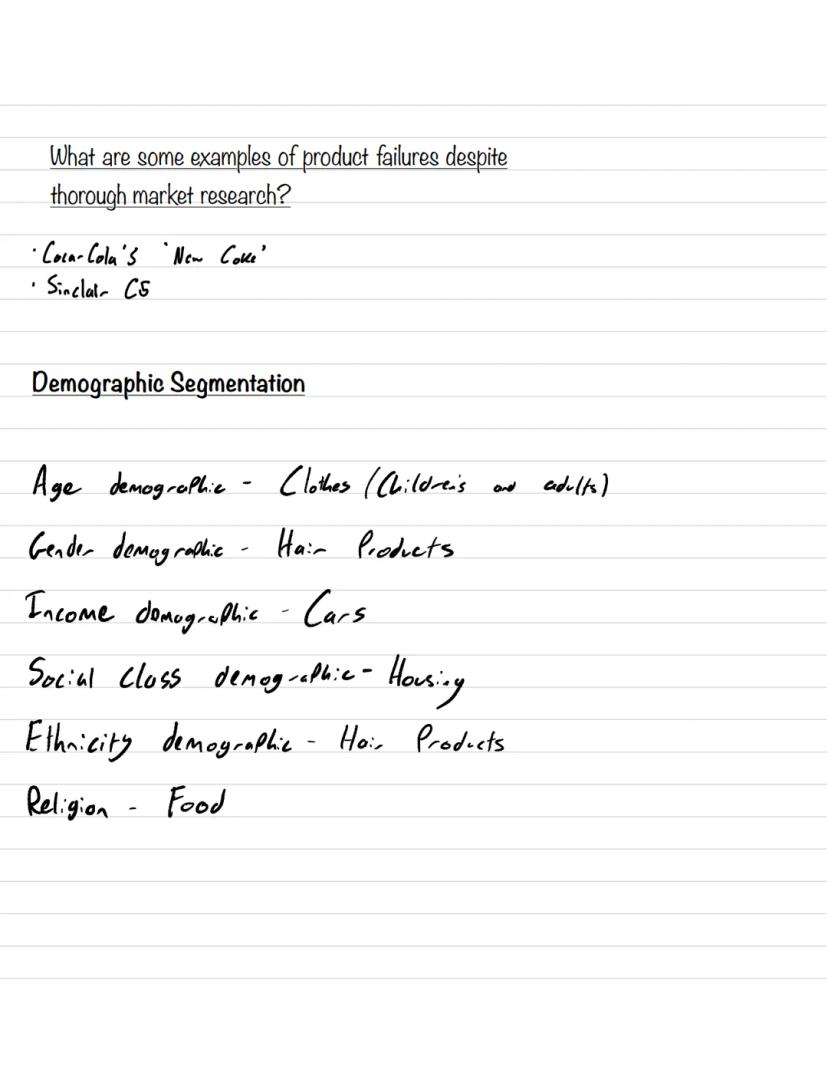 What are some examples of product failures despite
thorough market research?
· Coca-Cola's 'New Coke'
· Sinclair C5
Demographic Segmentation
Age demographic - Clothes (Children's and adults)
Gender demographic - Hair Products
Income demographic - Cars
Social Class demographic - Housing
Ethnicity demographic - Hair Products
Religion - Food